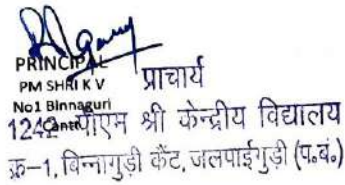 PRINCIPAL
PM SHRI K V
No1 Binnaguri
Cantt
प्राचार्य
1242 पीएम श्री केन्द्रीय विद्यालय
क्र-1, बिन्नागुड़ी कैंट, जलपाईगुड़ी (प.बं.)